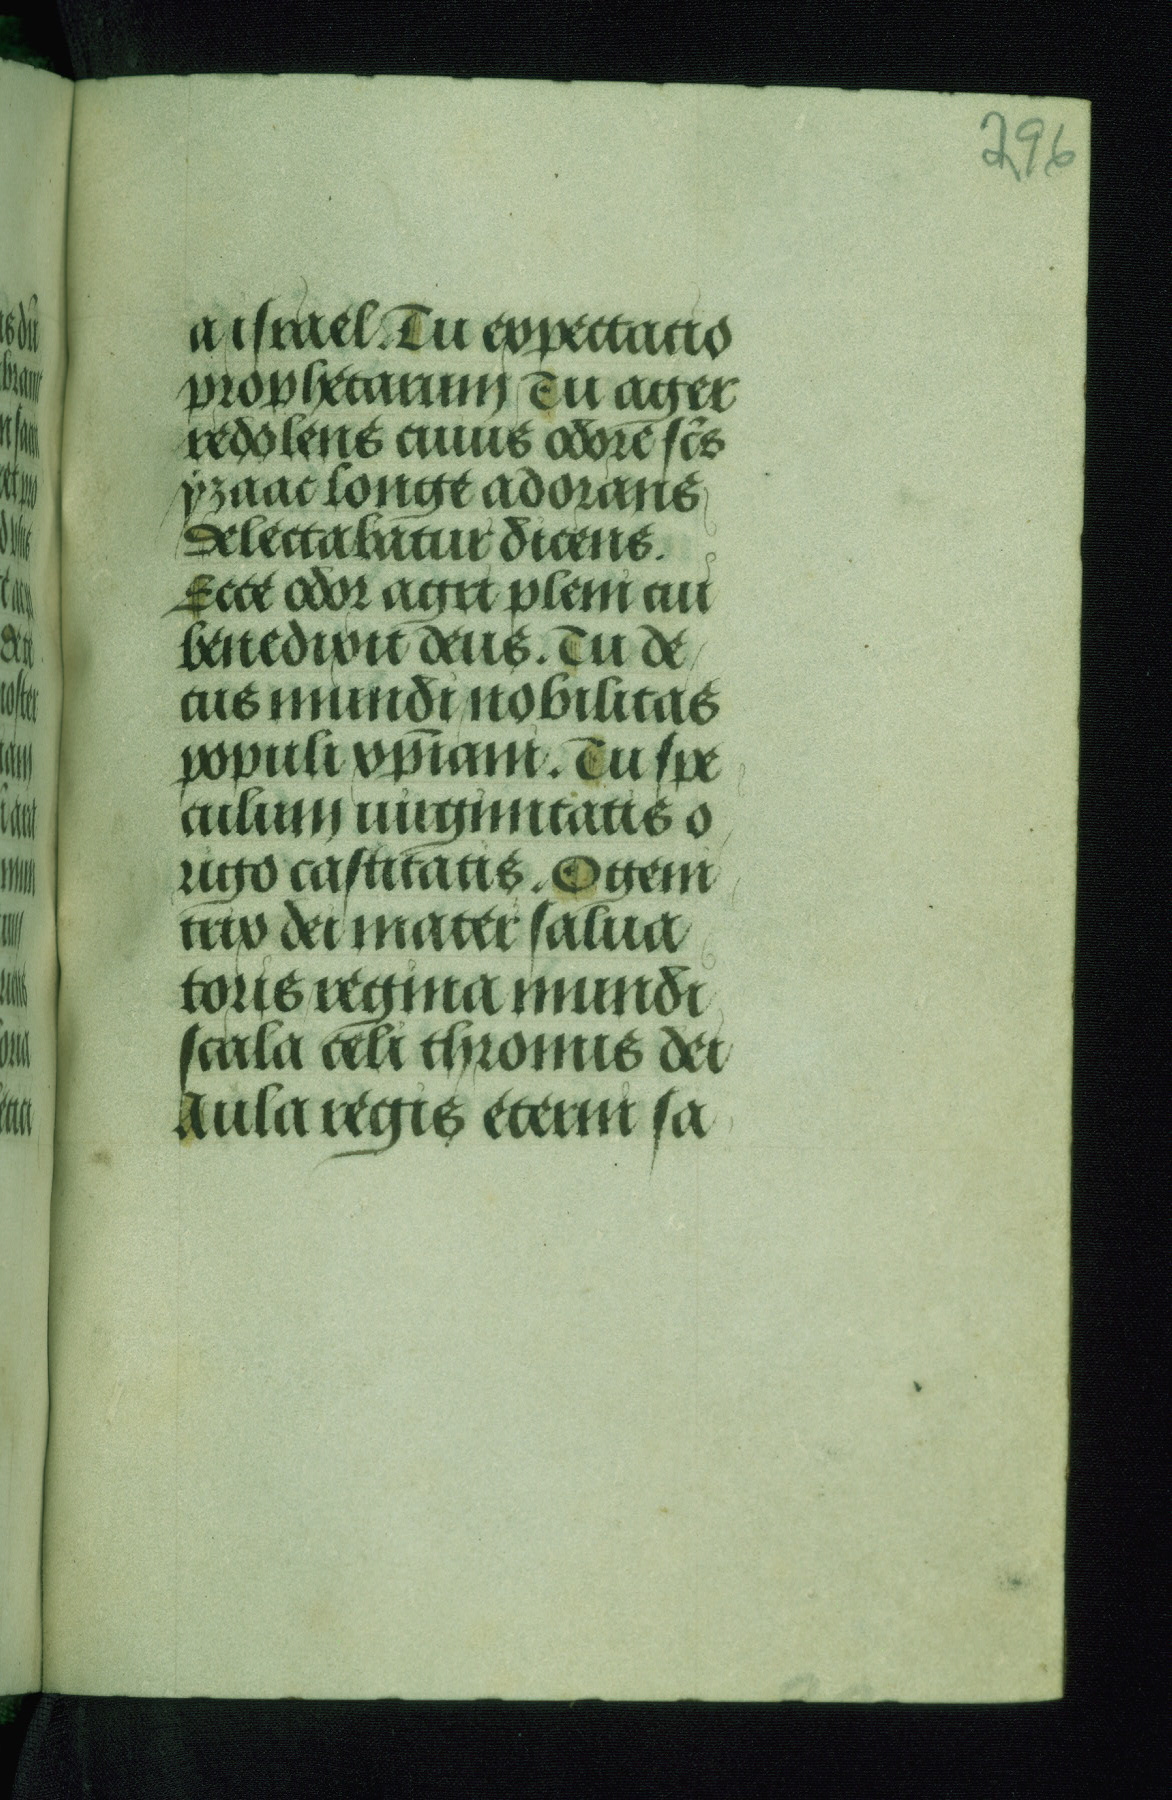 296
a israel. Tu expectatio
prophetarum Tu ager
redolens cuius odorē sc̄s
yzaac longe adorans
delectabatur dicens.
Ecce odor agri pleni cui
benedixit deus. Tu de
cus mundi nobilitas
populi xp̄iani. Tu spe
culum uirginitatis o
rigo castitatis. O geni
trix dei mater salua
toris regina mundi
scala celi thronus dei
Aula regis eterni sa